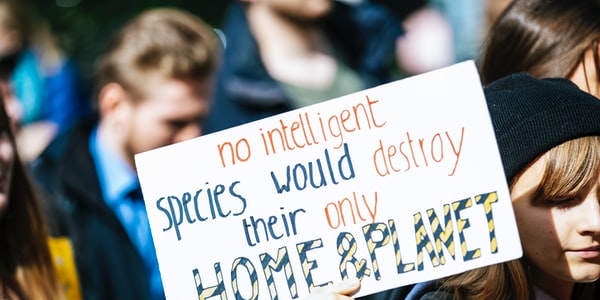 no intelligent
species would destroy
their only
HOME & PLANET